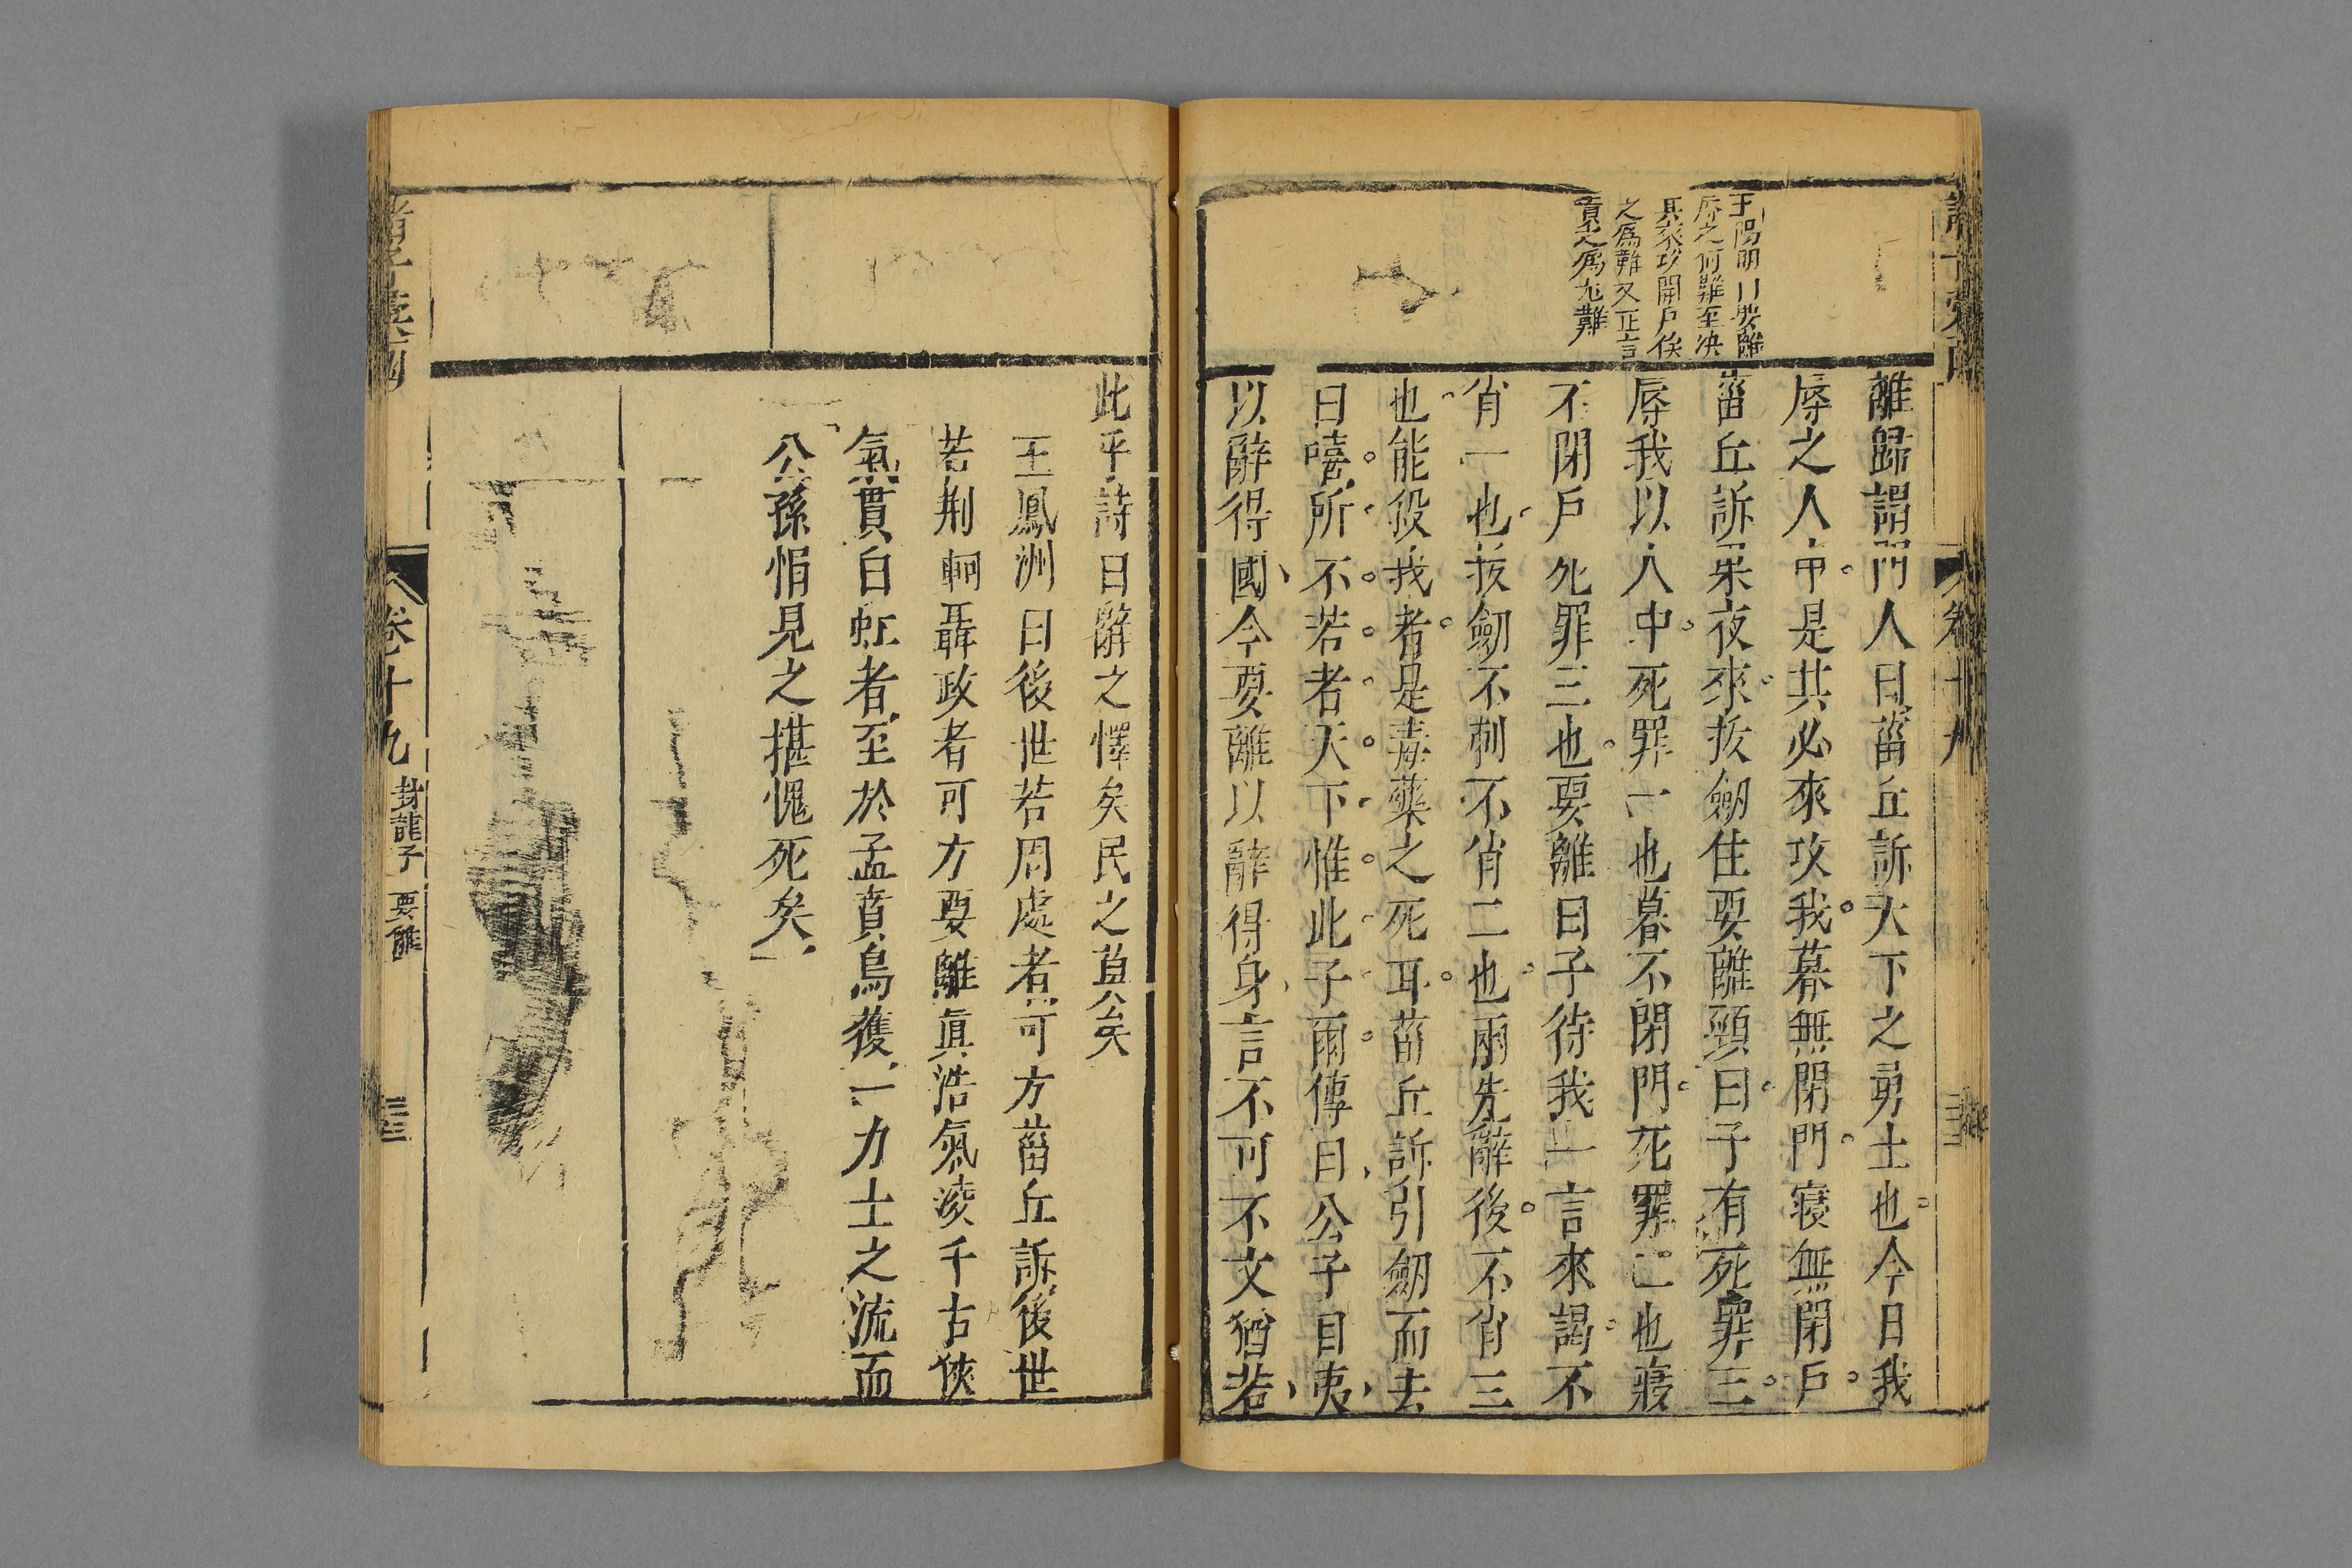 王陽明曰要離
辱之何難至決
其來攻開戶俟
之爲難又正言
責之爲尤難
離歸謂門人曰菑丘訴天下之勇士也今日我
辱之人中是其必來攻我暮無閉門寢無閉戶
菑丘訴果夜來拔劒住要離頸曰子有死罪三
辱我以人中死罪一也暮不閉門死罪二也寢
不閉戶死罪三也要離曰子待我一言來謁不
肖一也拔劒不刺不肖二也刃先辭後不肖三
也能殺我者是毒藥之死耳菑丘訴引劒而去
曰嘻所不若者天下惟此子爾傳曰公子目夷
以辭得國今要離以辭得身言不可不文猶若
此乎詩曰辭之懌矣民之莫矣
王鳳洲曰後世若周處者可方菑丘訴後世
若荆軻聶政者可方要離眞浩氣淩千古俠
氣貫白虹者至於孟賁烏獲一力士之流而
公孫悁見之堪愧死矣
卷十九
封龍子 要離